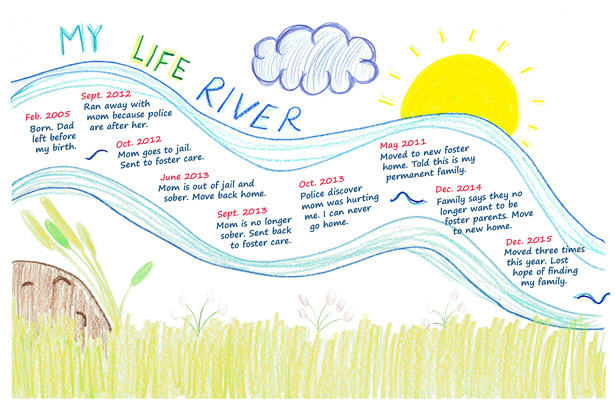 MY LIFE RIVER
Feb. 2005
Born. Dad
left before
my birth.
Sept. 2012
Ran away with
mom because police
are after her.
Oct. 2012
Mom goes to jail.
Sent to foster care.
June 2013
Mom is out of jail and
sober. Move back home.
Sept. 2013
Mom is no longer
sober. Sent back
to foster care.
Oct. 2013
Police discover
mom was hurting
me. I can never
go home.
May 2011
Moved to new foster
home. Told this is my
permanent family.
Dec. 2014
Family says they no
longer want to be
foster parents. Move
to new home.
Dec. 2015
Moved three times
this year. Lost
hope of finding
my family.